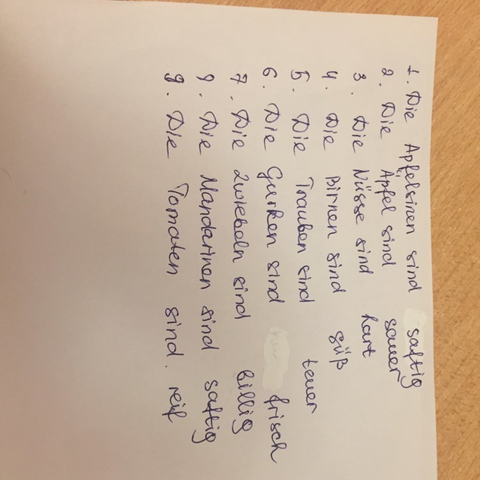 1. Die Apfelsinen sind saftig
2. Die Äpfel sind sauer
3. Die Nüsse sind hart
4. Die Birnen sind süß
5. Die Trauben sind teuer
6. Die Gurken sind frisch
7. Die Zwiebeln sind billig
9. Die Mandarinen sind saftig
9. Die Tomaten sind. reif